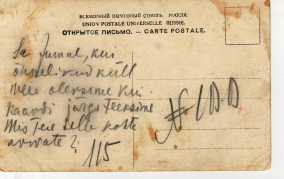 ВСЕМІРНЫЙ ПОЧТОВЫЙ СОЮЗЪ. РОССІЯ.
UNION POSTALE UNIVERSELLE RUSSIE.
ОТКРЫТОЕ ПИСЬМО. — CARTE POSTALE.
Se Jumal, kui
õnnelikud küll
meie olersime kui
kaardi järge
Mis Teie selle kohte
arwate?
115